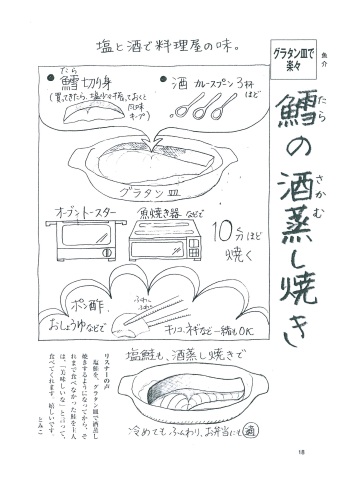 魚介
グラタン皿で
楽々
鱈の酒蒸し焼き
たら
さかむ
塩と酒で料理屋の味。
たら
鱈切り身
酒 カレースプーン3杯
ほど
グラタン皿
オーブントースター
魚焼き器などで
10分ほど
焼く
ポン酢、
おしょうゆなどで
ふわ〜
ふわ〜
キノコ、ネギなど一緒もOK
塩鮭も、酒蒸し焼きで
冷めてもふんわり、お弁当にも
リスナーの声
塩鮭を、グラタン皿で酒蒸し
焼きするようになってから、そ
れまで食べなかった鮭を主人
は、「美味しいな」と言って、
食べてくれます。嬉しいです。
とみこ
18